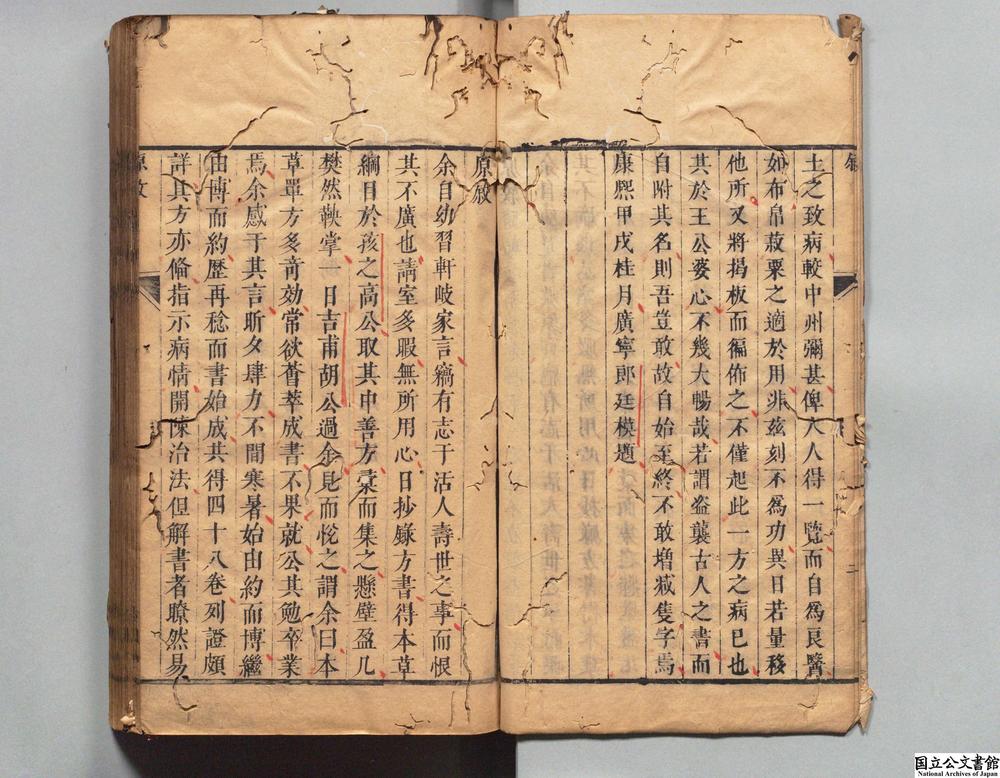 土之致病較中州彌甚俾人人得一覽而自為良醫
如布帛菽粟之適於用非茲刻不為功異日若量移
他所又將揭板而徧佈之不僅起此一方之病已也
其於王公婆心不幾大暢哉若謂盜襲古人之書而
自附其名則吾豈敢故自始至終不敢增減隻字焉
康熈甲戌桂月廣寧郎廷模題
原敘
余自幼習軒岐家言竊有志于活人壽世之事而恨
其不廣也請室多暇無所用心日抄錄方書得本草
綱目於孩之高公取其中善方彙而集之懸壁盈几
樊然鞅掌一日吉甫胡公過余見而悅之謂余曰本
草單方多竒効常欲薈萃成書不果就公其勉卒業
焉余感于其言昕夕肆力不間寒暑始由約而博繼
由博而約歷再稔而書始成共得四十八卷列證頗
詳其方亦僃指示病情開陳治法但解書者瞭然易
原敘
国立公文書館
National Archives of Japan